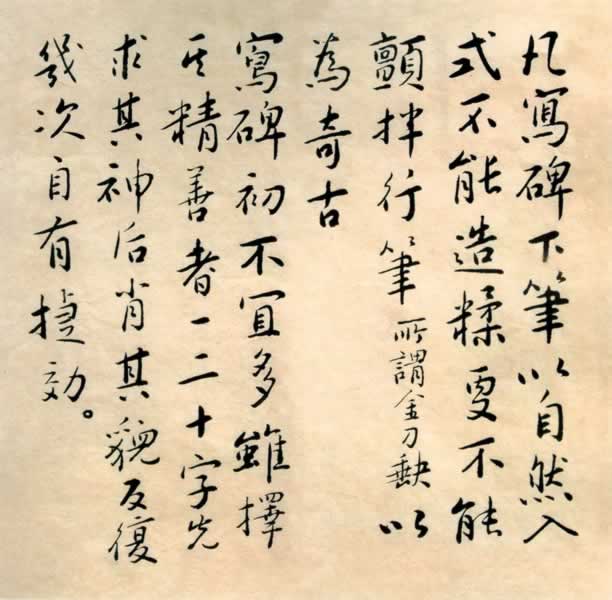 凡寫碑下筆以自然入
式不能造糅更不能
顫抖行筆所謂金刀缺以
為奇古
寫碑初不宜多雖擇
其精善者一二十字先
求其神后肖其貌反復
幾次自有捷効。